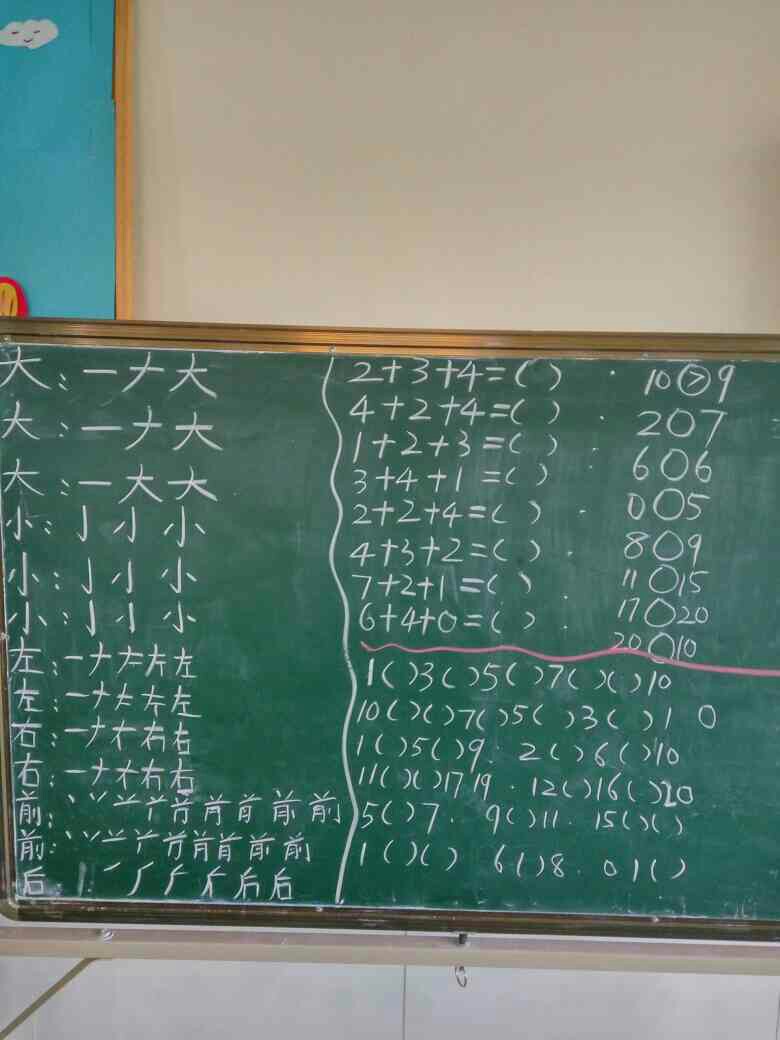 大：一ナ大
大：一ナ大
大：一大大
小：亅小小
小：亅小小
小：亅小小
左：一ナ左左左
左：一ナ左左左
右：一ナ右右
右：一ナ右右
前：丶丷
前：丶丷
后 后后
2+3+4=( )
4+2+4=( )
1+2+3=( )
3+4+1=( )
2+2+4=( )
4+3+2=( )
7+2+1=( )
6+4+0=( )
10>9
2○7
6○6
0○5
8○9
11○15
17○20
20○10
1( )3( )5( )7( )( )10
10( )( )7( )5( )3( )1 0
1( )5( )9. 2( )6( )10
11( )( )17 19. 12( )16( )20
5( )7. 9( )11. 15( )( )
1( )( ) 6( )8. 0 1( )